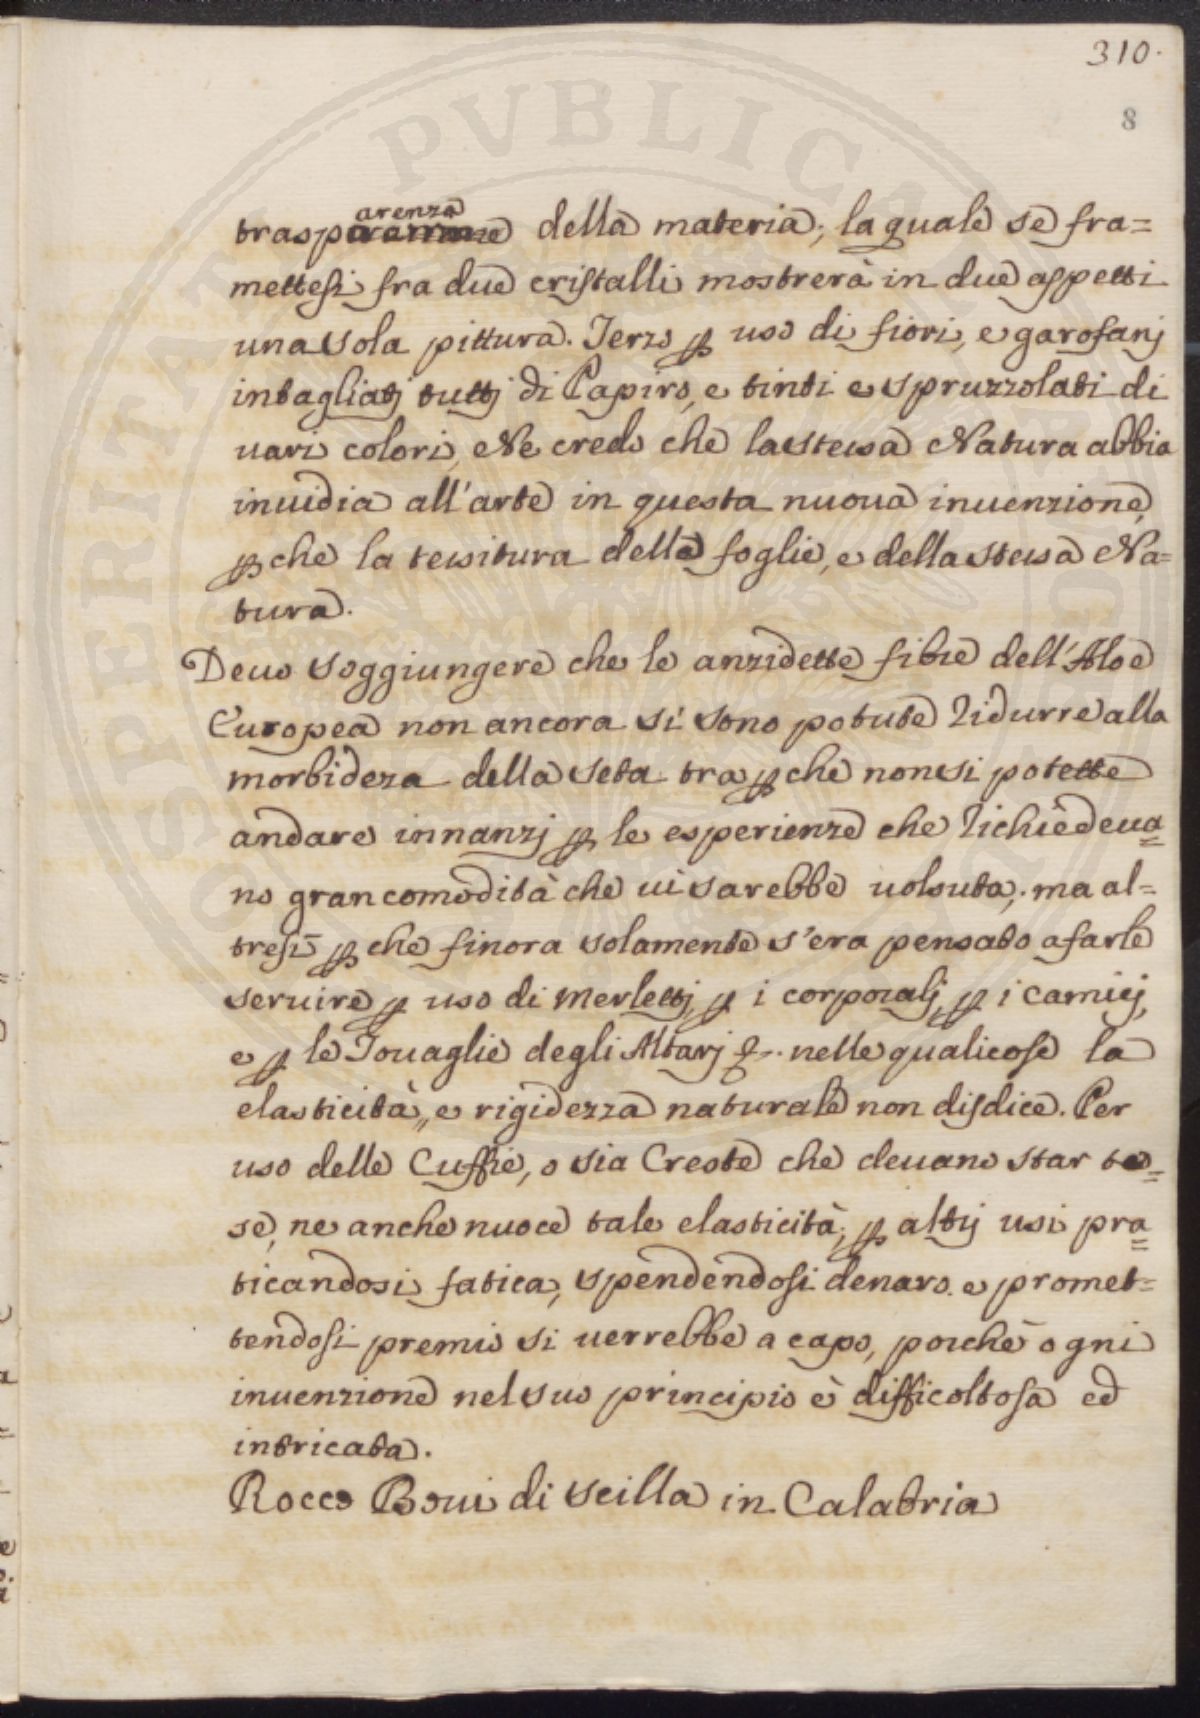 310.
8
trasparenza della materia; la quale se fra=
mettesi fra due cristalli mostrerà in due aspetti
una sola pittura. Terzo ꝑ uso di fiori, e garofanj
intagliatj tuttj di Papiro, e tinti e spruzzolati di
uari colori, Ne credo che la stessa Natura abbia
inuidia all'arte in questa nuoua inuenzione,
ꝑche la tessitura della foglie, e della stessa Na=
tura.
Deuo soggiungere che le anzidette fibre dell'Aloe
Europea non ancora si sono potute ridurre alla
morbideza della seta tra ꝑche non si potette
andare innanzj ꝑ le esperienze che richiedeua=
no gran comodità che ui sarebbe uoluta; ma al=
tresì ꝑche finora solamente s'era pensato a farle
seruire ꝑ uso di Merlettj, ꝑ i corporalj, ꝑ i camicj,
e ꝑ le Touaglie degli Altarj &. nelle quali cose la
elasticità, e rigidezza naturale non disdice. Per
uso delle Cuffie, o sia Creste che deuano star te=
se, ne anche nuoce tale elasticità; ꝑ altrj usi pra=
ticandosi fatica, spendendosi denaro e promet=
tendosi premio si uerrebbe a capo, poiche ogni
inuenzione nel suo principio è difficoltosa ed
intricata.
Rocco Boui di Scilla in Calabria
PVBLICAE
PROSPERITATI